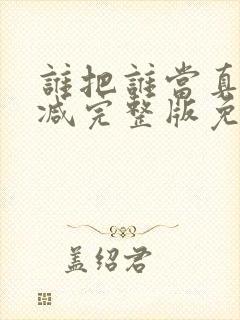 誰把誰當真
减完整版免
盖绍君